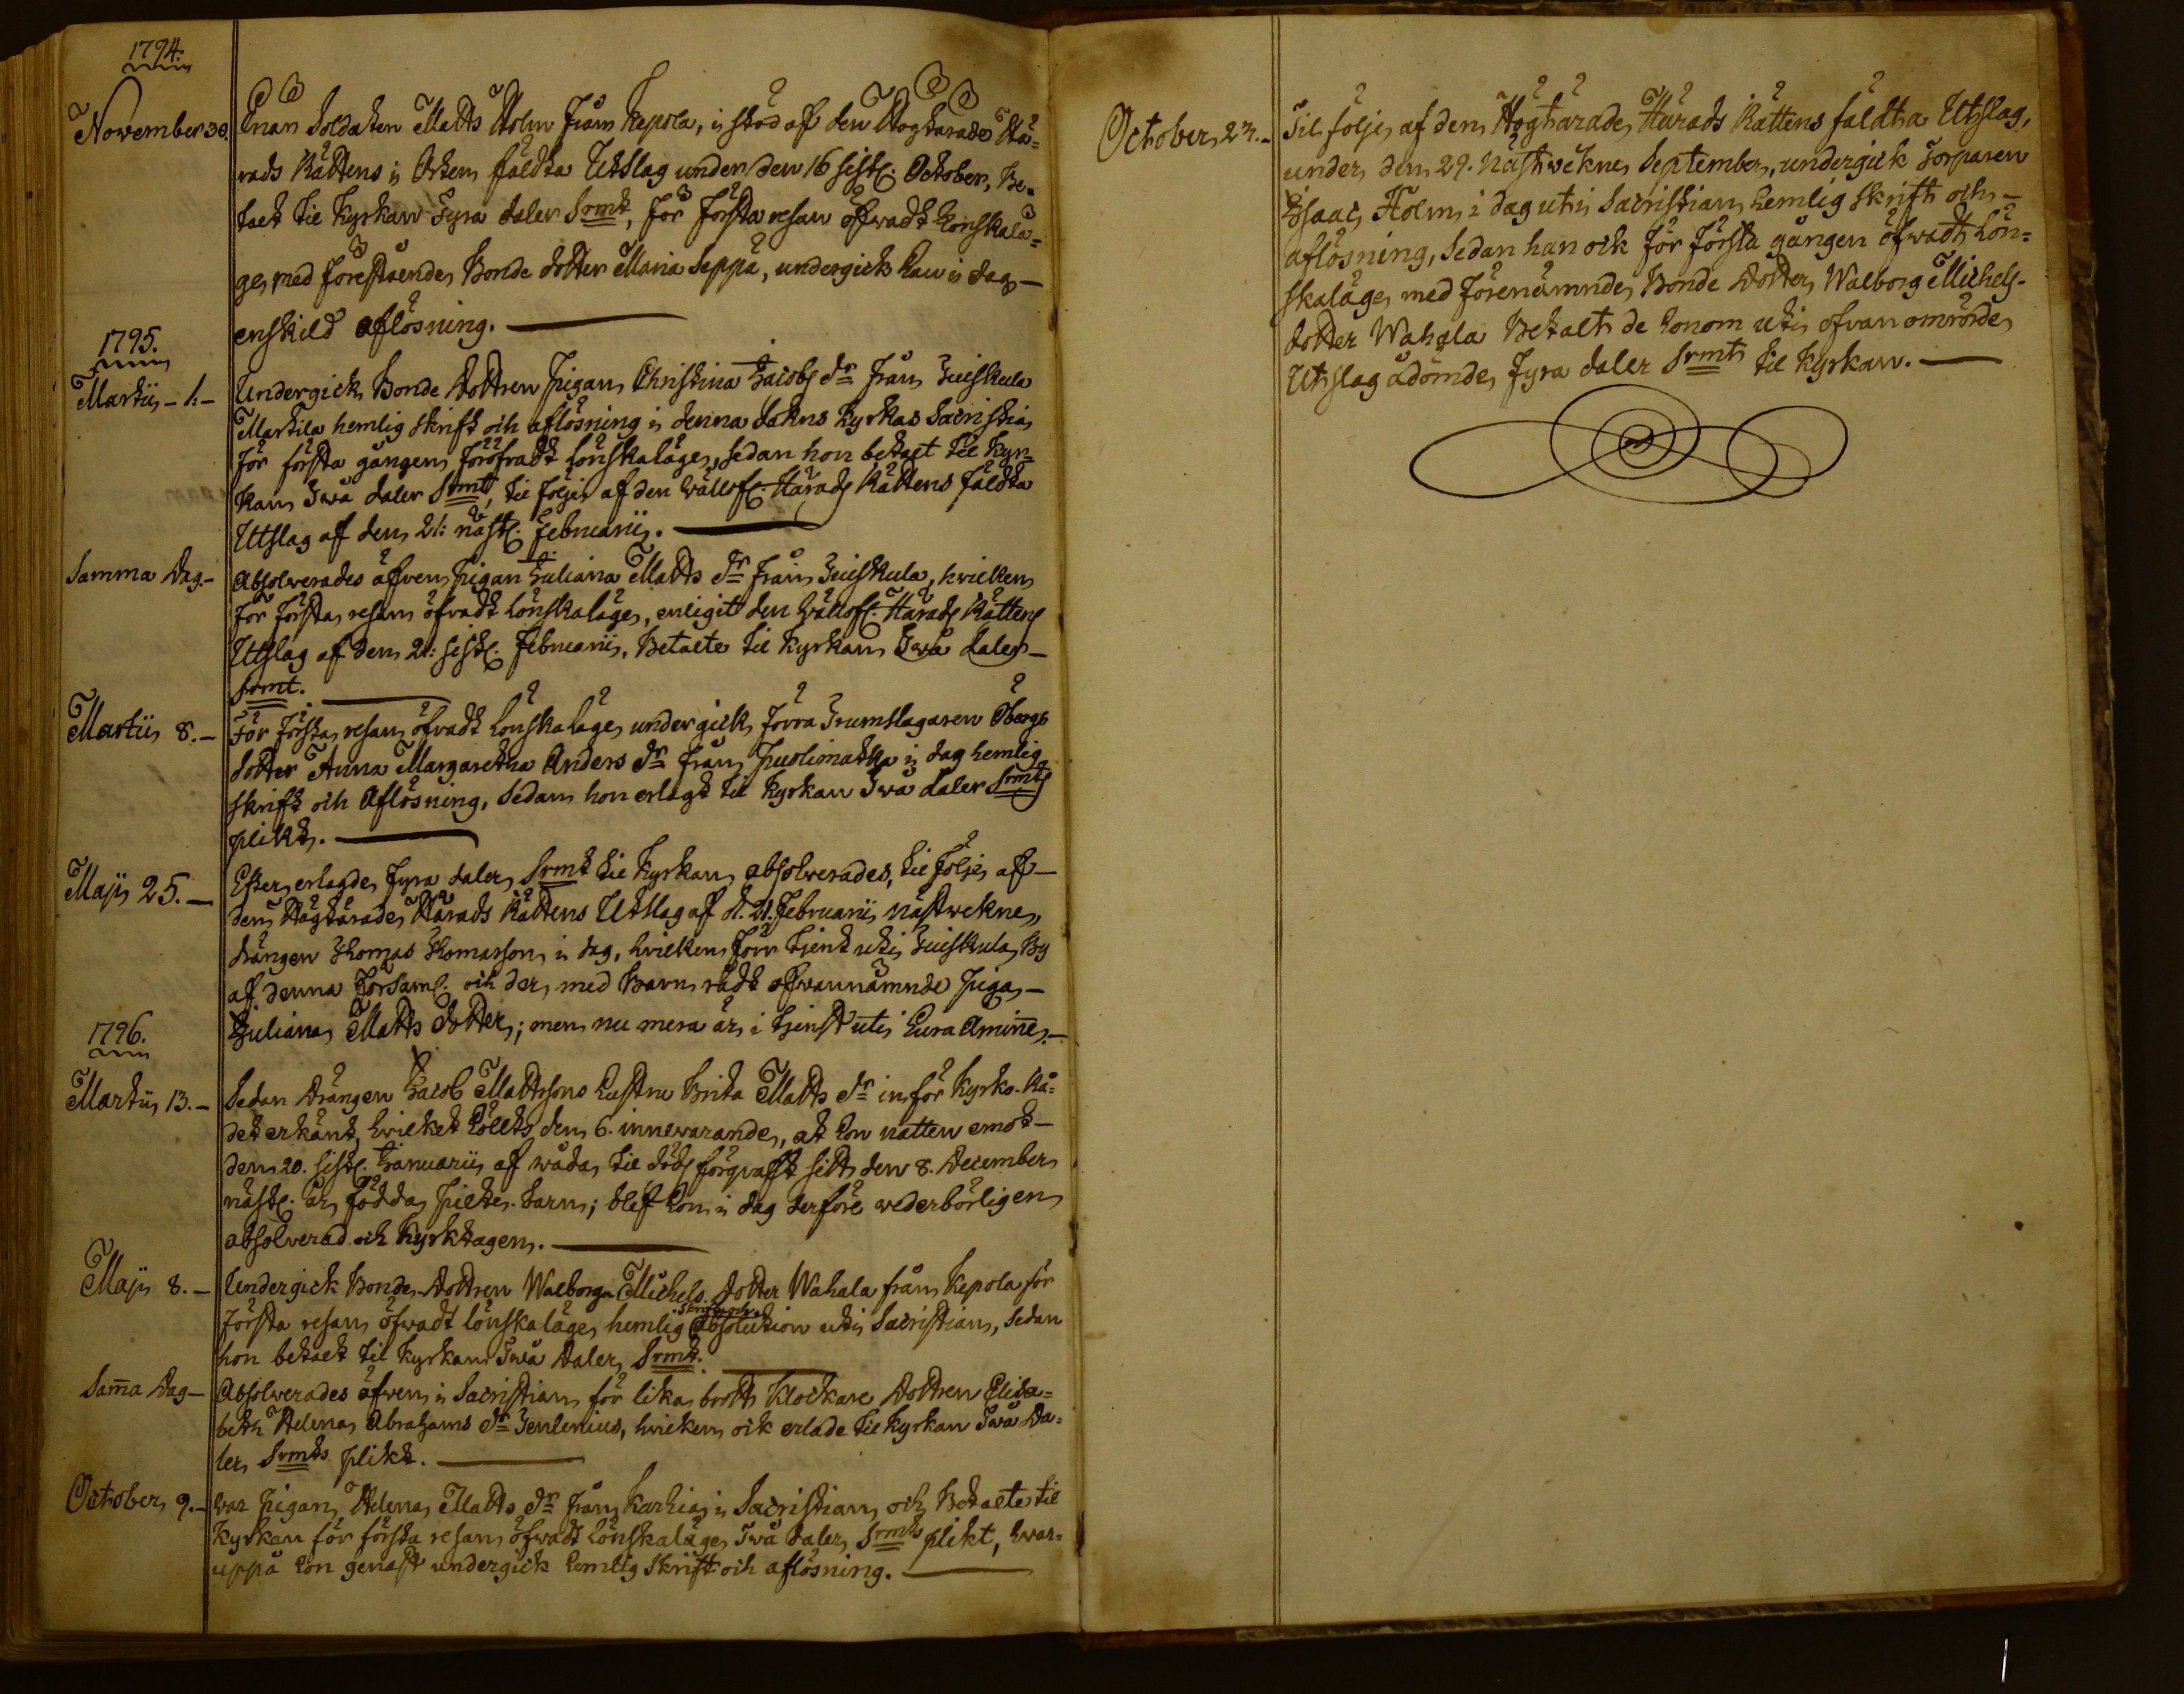 1794.
November 30. Enan Soldaten Matts Holm från Kepola, i stöd af den Högtärade Hä=
rads Rättens i Orten fäldta Utslag under den 16 sistl. October, Be=
talt til Kyrkan Fyra daler Srmt, för första resan öfwadt Lönskalä=
ge, med förestående Bonde dotter Maria Seppä, undergick han i dag —
enskild aflösning. —
1795.
Martii – 1. – Undergick Bonde Dottren Pigan Christina Jacobs dr från Juiskula
Martila hemlig skrift och aflösning i denna dakns Kyrkas Sacristia
för första gången föröfradt Lönskaläge, sedan hon betalt til Kyr=
kan Twå daler Srmt, til följe af den Wällofl. Härads Rättens fäldta
Utslag af den 21: nästl. Februarii. —
Samma Dag. – Absolwerades äfwen Pigan Juliana Matts dr från Juiskula, hwilken
för första resan öfwadt Lönskaläge, enligit den Wällofl. Härads Rättens
Utslag af den 21: sistl. Februarii, Betalte til Kyrkan Twå daler —
Srmt. —
Martii 8. – För första resan öfwadt Lönskaläge undergick förra Trumslagaren Öbergs
dotter Anna Margaretha Anders dr från Puolimatka i dag hemlig
skrift och Aflösning, sedan hon erlagt til Kyrkan Twå daler Srmts
plikt. —
Maji 25. — Efter erlagde Fyra daler Srmt til Kyrkan absolwerades, til följe af —
den Högtärade Härads Rättens Utslag af d. 21. Februarii nästwekne,
drängen Thomas Thomasson i dag, hwilken förr tjent uti Juiskula By
af denna Församl. och der, med Barn rådt ofwannämnde Piga —
Juliana Matts Dotter; men nu mera är i tjenst uti Eura Aminne. —
1796.
Martii 13. – Sedan Drängen Jacob Mattssons Hustru Brita Matts dr inför Kyrko-Rå=
det erkänt, hwilket hölts den 6. innewarande, at hon natten emot —
den 20. sistl. Januarii af wåda til döds förqwafft sitt den 8. December
nästl. år födda Pilte-barn; blef hon i dag derföre wederbörligen
absolverad och Kyrktagen. —
Maji 8. – Undergick Bonde Dottren Walborg Michels Dotter Wahala från Kepola för
första resan öfwadt lönskaläge, hemlig skrift och Absolution uti Sacristian, sedan
hon betalt til Kyrkan Twå Daler Srmt. —
Sam̄a Dag – Absolwerades äfwen i Sacristian för lika brott Klockare Dottren Elisa=
beth Helena Abrahams dr Jenlenius, hwilken ock erlade til Kyrkan Twå Da=
ler Srmts plikt. —
October 9. – War Pigan Helena Matts dr från Karhia i Sacristian och Betalte til
Kyrkan för första resan öfwadt Lönskaläge Twå daler Srmts plikt, hwar=
uppå hon genast undergick hemlig skrift och aflösning. —
October 23. – Til följe af den Högtärade Härads Rättens fäldta Utslag,
under den 29. nästwekne September, undergick Torparen
Isaac Holm i dag uti Sacristian hemlig skrift och —
aflösning, sedan han ock för första gången öfwadt Lön=
skaläge med förenämnde Bonde Dotter Walborg Michels-
dotter Wahala Betalt de honom uti ofwan omrörde
Utslag ådömde Fyra daler Srmt til Kyrkan. —